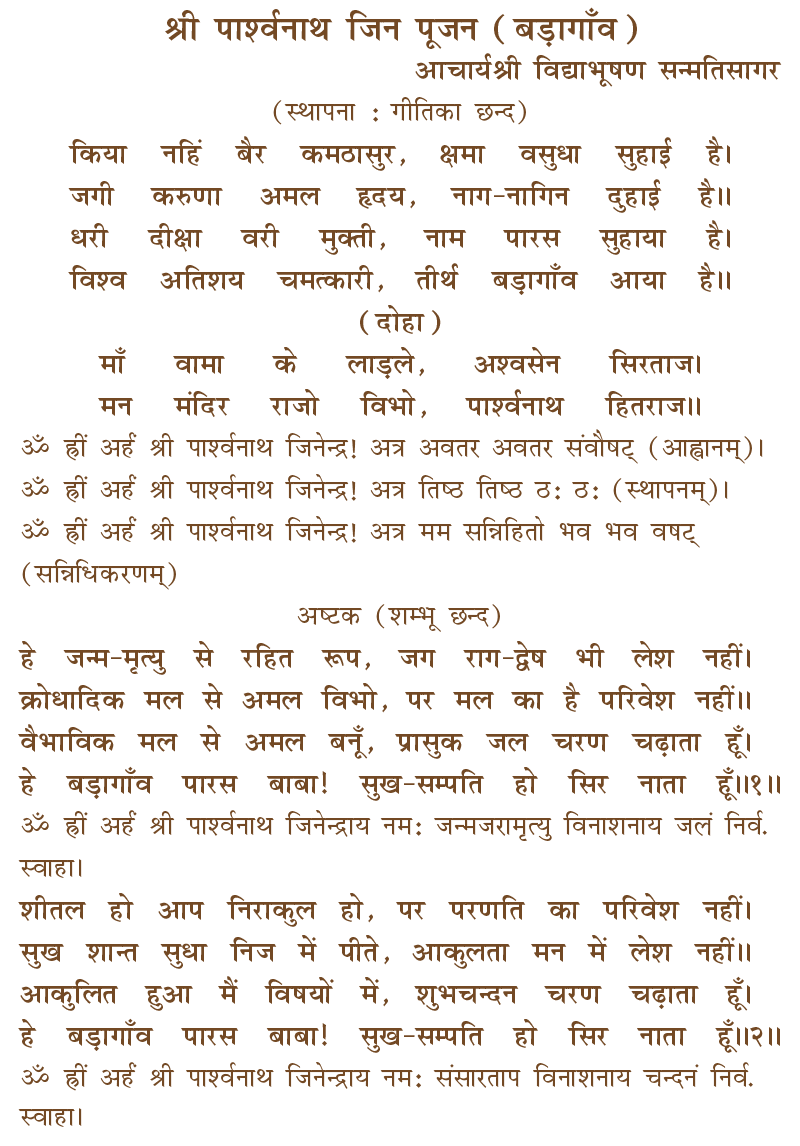 श्री पार्श्वनाथ जिन पूजन (बड़ागाँव)
आचार्यश्री विद्याभूषण सन्मतिसागर
(स्थापना : गीतिका छन्द)
किया नहिं बैर कमठासुर, क्षमा वसुधा सुहाई है।
जगी करुणा अमल हृदय, नाग-नागिन दुहाई है॥
धरी दीक्षा वरी मुक्ती, नाम पारस सुहाया है।
विश्व अतिशय चमत्कारी, तीर्थ बड़ागाँव आया है॥
(दोहा)
माँ वामा के लाड़ले, अश्वसेन सिरताज।
मन मंदिर राजो विभो, पार्श्वनाथ हितराज॥
ॐ ह्रीं अर्हं श्री पार्श्वनाथ जिनेन्द्र! अत्र अवतर अवतर संवौषट् (आह्वानम्)।
ॐ ह्रीं अर्हं श्री पार्श्वनाथ जिनेन्द्र! अत्र तिष्ठ तिष्ठ ठ: ठ: (स्थापनम्)।
ॐ ह्रीं अर्हं श्री पार्श्वनाथ जिनेन्द्र! अत्र मम सन्निहितो भव भव वषट्
(सन्निधिकरणम्)
अष्टक (शम्भू छन्द)
हे जन्म-मृत्यु से रहित रूप, जग राग-द्वेष भी लेश नहीं।
क्रोधादिक मल से अमल विभो, पर मल का है परिवेश नहीं॥
वैभाविक मल से अमल बनूँ, प्रासुक जल चरण चढ़ाता हूँ।
हे बड़ागाँव पारस बाबा! सुख-सम्पति हो सिर नाता हूँ॥१॥
ॐ ह्रीं अर्हं श्री पार्श्वनाथ जिनेन्द्राय नम: जन्मजरामृत्यु विनाशनाय जलं निर्व.
स्वाहा।
शीतल हो आप निराकुल हो, पर परणति का परिवेश नहीं।
सुख शान्त सुधा निज में पीते, आकुलता मन में लेश नहीं॥
आकुलित हुआ मैं विषयों में, शुभचन्दन चरण चढ़ाता हूँ।
हे बड़ागाँव पारस बाबा! सुख-सम्पति हो सिर नाता हूँ॥२॥
ॐ ह्रीं अर्हं श्री पार्श्वनाथ जिनेन्द्राय नम: संसारताप विनाशनाय चन्दनं निर्व.
स्वाहा।